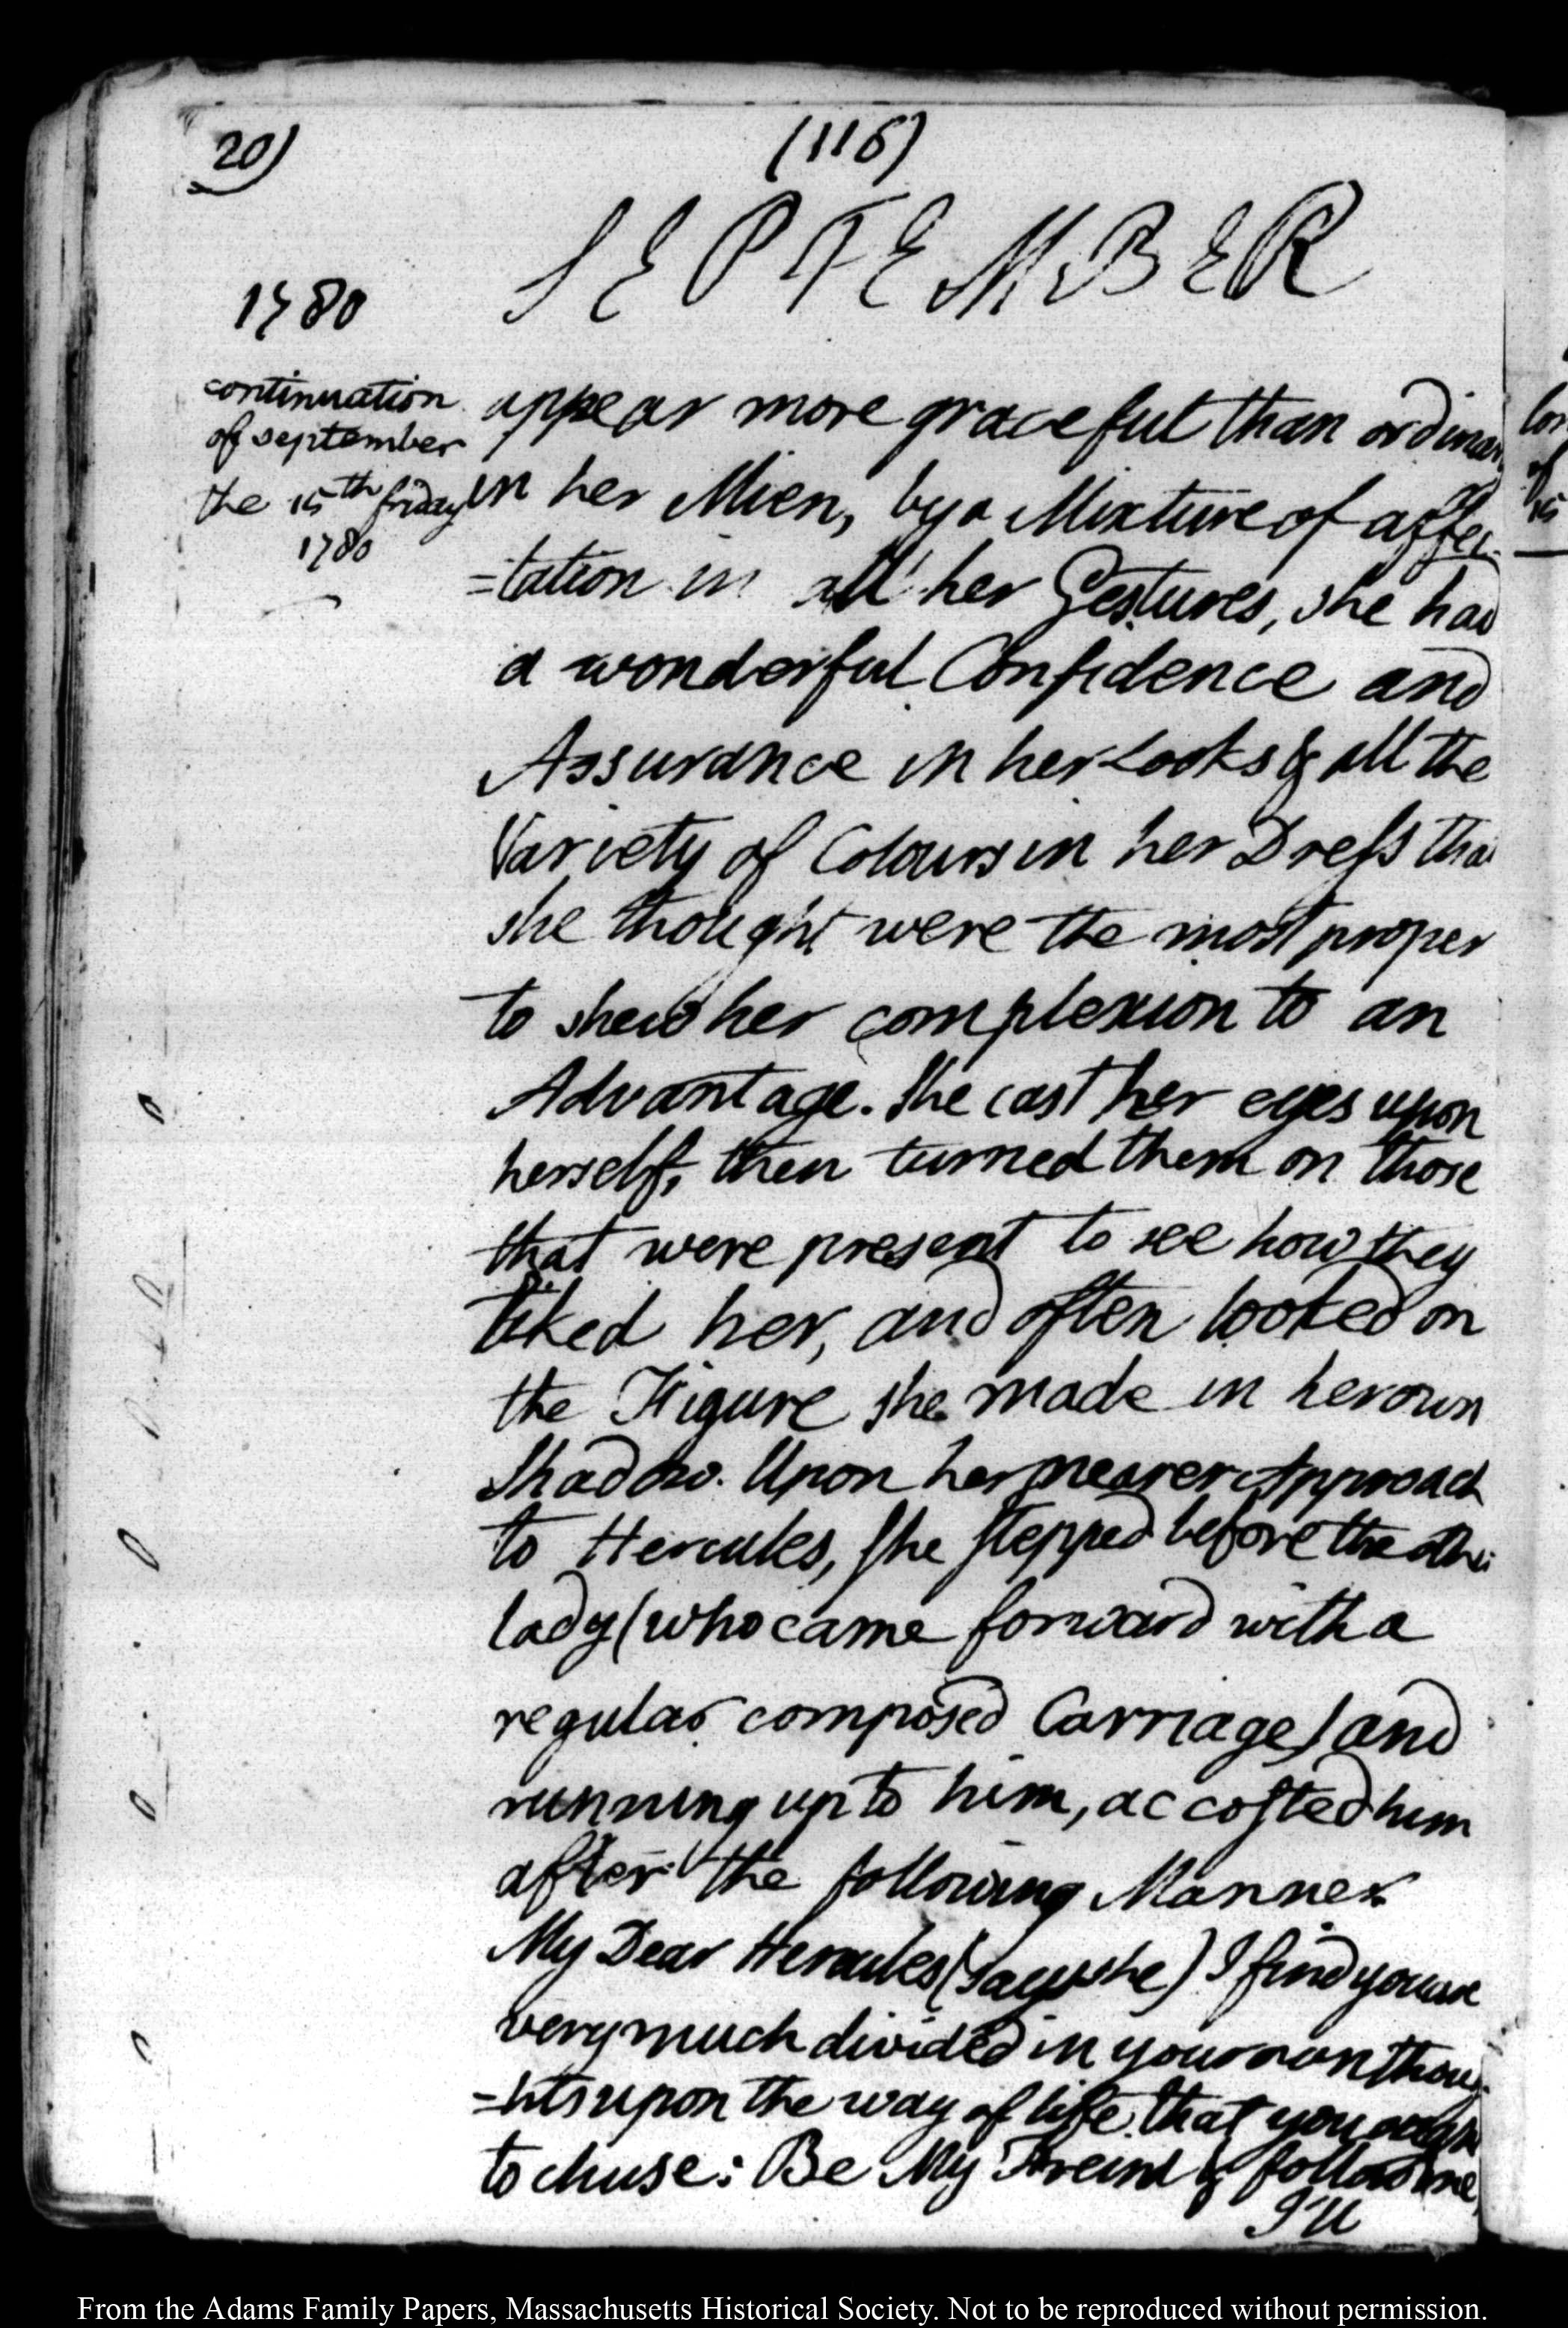 20)
(116)
SEPTEMBER
1780
continuation
of september
the 15th friday
1780
appear more graceful than ordinary
in her Mien, by a Mixture of affec-
=tation in all her Gestures, she had
a wonderful Confidence and
Assurance in her Looks & all the
Variety of Colours in her Dress that
she thought were the most proper
to shew her complexion to an
Advantage. She cast her eyes upon
herself, then turned them on those
that were present to see how they
liked her, and often looked on
the Figure she made in her own
Shadow. Upon her nearer Approach
to Hercules, She stepped before the other
lady (who came forward with a
regular composed Carriage) and
running up to him, accosted him
after the following Manner
My Dear Hercules (Says she) I find you are
very much divided in your own thoug-
=hts upon the way of life that you ought
to chuse: Be My Freind & follow me,
I'll
From the Adams Family Papers, Massachusetts Historical Society. Not to be reproduced without permission.